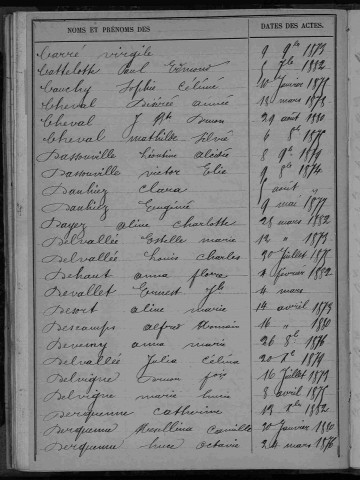 NOMS ET PRÉNOMS DES
DATES DES ACTES.
Carré virgile 9 9bre 1873
Catteloth Paul Edmond 5 7bre 1882
Cauchy Sophie Célinie 10 février 1875
Cheval Désirée aimée 18 mars 1878
Cheval J Bte 29 août 1880
Cheval mathilde Silvie 6 8bre 1875
Dassonville Léontine 8 9bre 1879
Dassonville victor Elie 9 8bre 1874
Daubiez Clara 5 août "
Daubiez Eugénie 9 mai 1877
Dayez aline charlotte 28 mars 1882
Delvallée Estelle marie 12 " 1875
Delvallée Louis charles 20 Juillet 1875
Dehaut anna flora 2 février 1882
Devallet Ernest Jh 4 mars
Desort aline marie 14 avril 1875
Descamps alfred Romain 16 " 1880
Deverny anna marie 26 8bre 1876
Delvallée Julia Célina 20 7bre 1879
Delvigne 16 Juillet 1873
Delvigne marie Lucie 8 avril 1875
Derquenne Catherine 12 1882
Derquenne Camille 20 Janvier 1880
Derquenne Luce Octavie 24 mars 1876